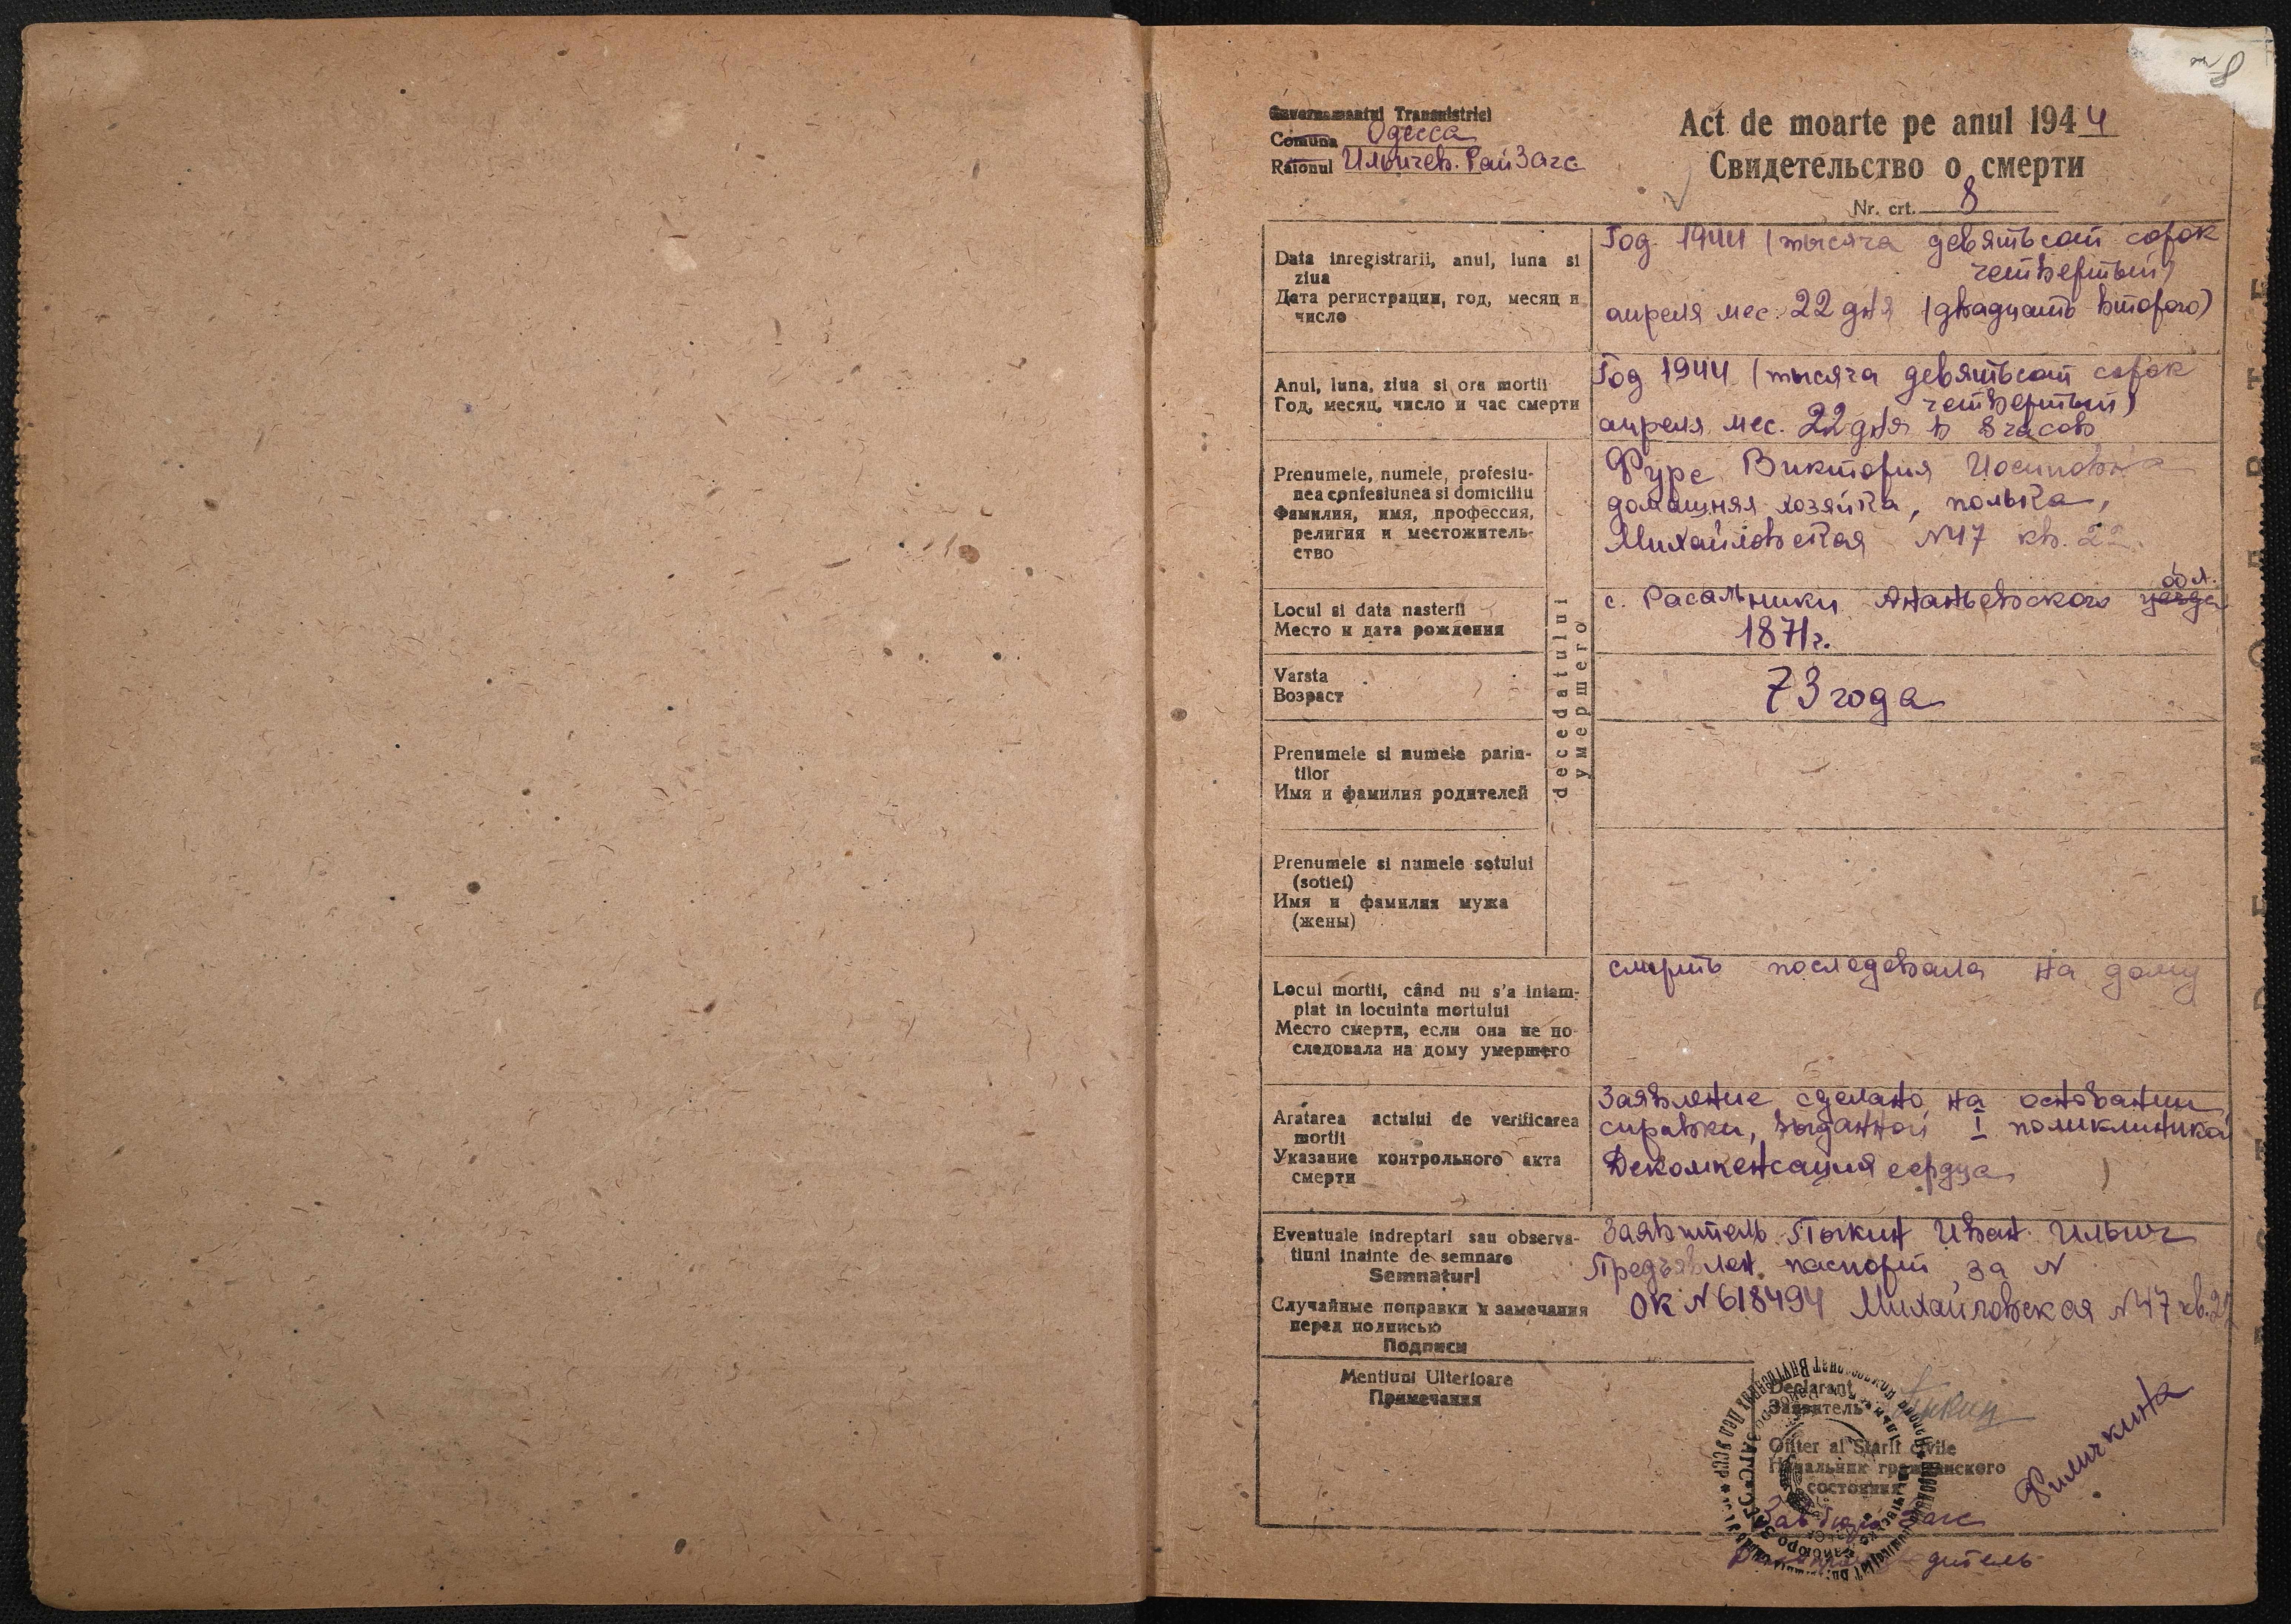 Guvernamantul Transnistriei
Comuna Одесса
Raionul Ильичев. РайЗагс
Act de moarte pe anul 1944
Свидетельство о смерти
Nr. crt. 8
Data inregistrarii, anul, luna si
ziua
Дата регистрации, год, месяц и
число
Год 1944 (тысяча девятьсот сорок
четвертый)
апреля мес. 22 дня (двадцать второго)
Anul, luna, ziua si ora mortii
Год, месяц, число и час смерти
Год 1944 (тысяча девятьсот сорок
четвертый)
апреля мес. 22 дня в 8 часов
Prenumele, numele, profesiu-
nea confesiunea si domiciliu
Фамилия, имя, профессия,
религия и местожитель-
ство
Фурс Виктория Иосиповна
домашняя хозяйка, полька,
Михайловская №47 кв. 22.
Locul si data nasterii
Место и дата рождения
обл.
с. Расальники Ананьевского уезда
1871г.
decedatului
умершего
Varsta
Возраст
73 года
Prenumele si numele parin-
tilor
Имя и фамилия родителей
Prenumele si numele sotului
(sotiei)
Имя и фамилия мужа
(жены)
Locul mortii, când nu s'a intam-
plat in locuinta mortului
Место смерти, если она не по-
следовала на дому умершего
смерть последовала на дому
Aratarea actului de verificarea
mortii
Указание контрольного акта
смерти
Заявление сделано на основании
справки, выданной I поликлиникой
Декомпенсация сердца
Eventuale indreptari sau observa-
tiuni inainte de semnare
Semnaturi
Случайные поправки и замечания
перед подписью
Подписи
Заявитель Пыкин Иван Ильич
Предъявлен паспорт за №
ОК №618494 Михайловская №47 кв.22
Mentiuni Ulterioare
Примечания
Declarant
Заявитель Пыкин
Ofiter al Starii civile
Начальник гражданского
состояния
Зав Бюро Загс
Филичкина